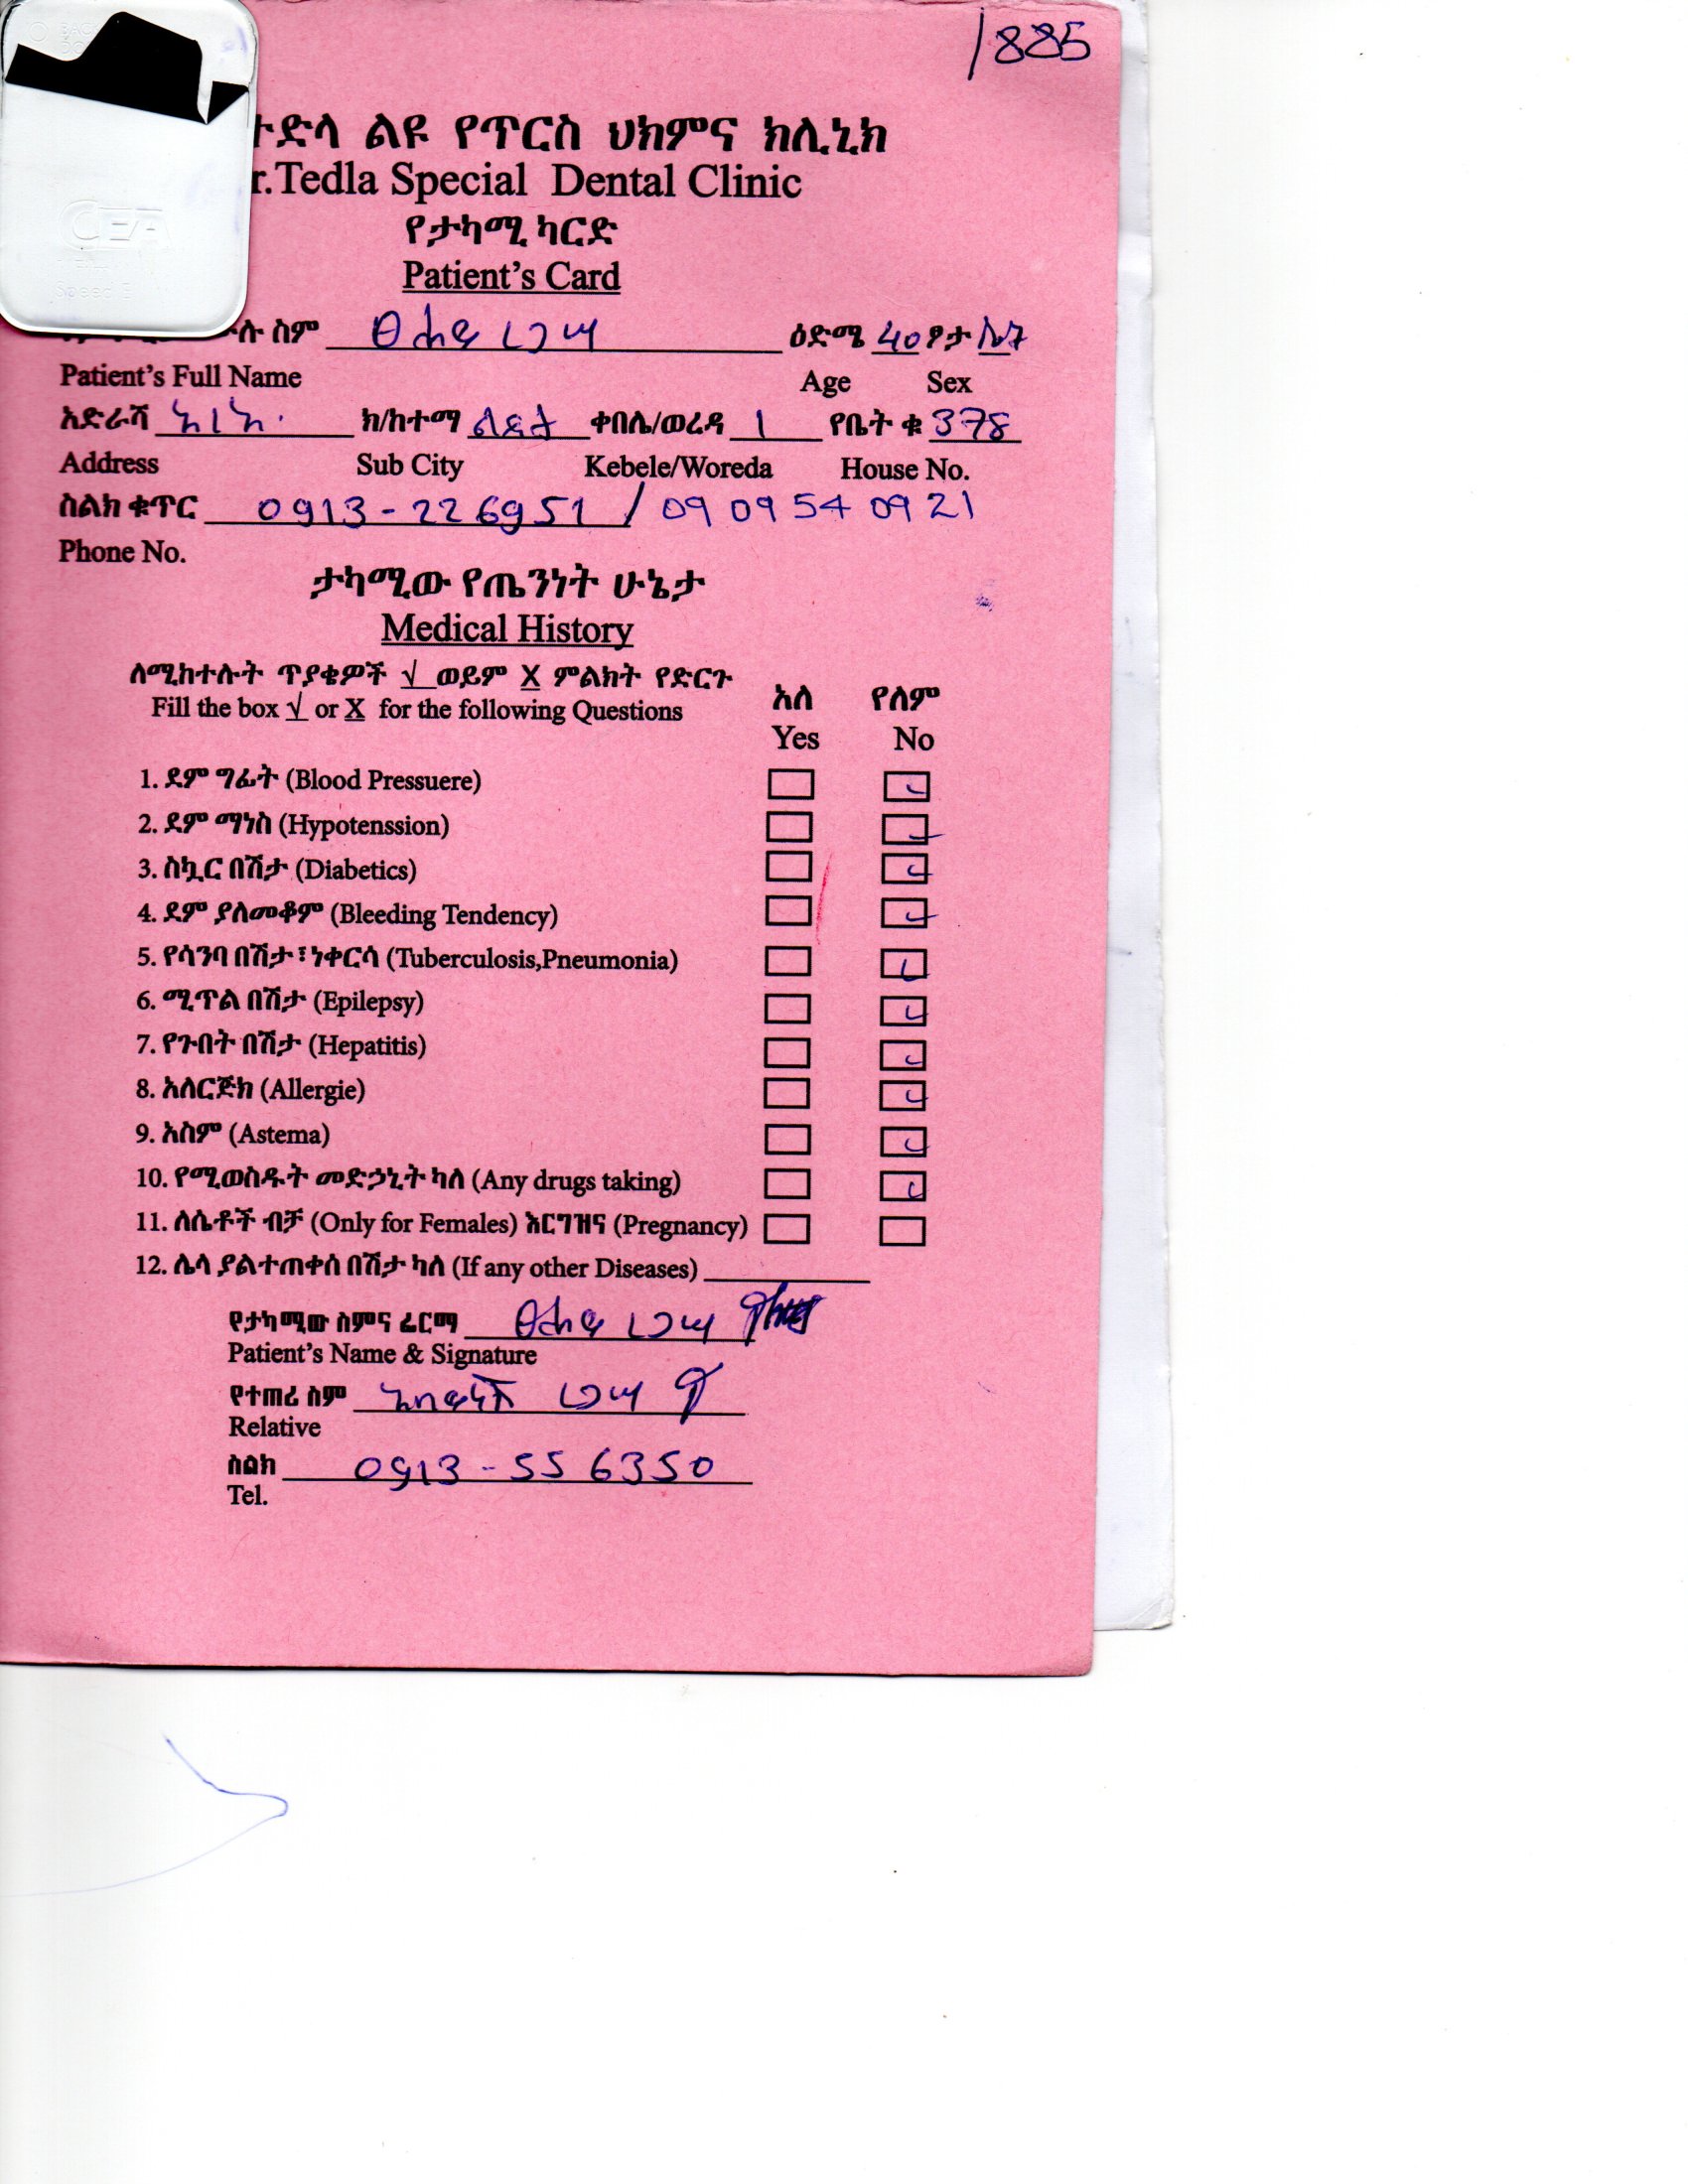 /885
ተድላ ልዩ የጥርስ ህክምና ክሊኒክ
r.Tedla Special Dental Clinic
የታካሚ ካርድ
Patient's Card
ሉ ስም ዕድሜ 40 ፆታ ሴት
Patient's Full Name Age Sex
አድራሻ አ/አ ክ/ከተማ ልደታ ቀበሌ/ወረዳ 1 የቤት ቁ 378
Address Sub City Kebele/Woreda House No.
ስልክ ቁጥር 0913-226951 / 0909540921
Phone No.
ታካሚው የጤንነት ሁኔታ
Medical History
ለሚከተሉት ጥያቄዎች √ ወይም X ምልክት የድርጉ
Fill the box √ or X for the following Questions
አለ የለም
Yes No
1. ደም ግፊት (Blood Pressuere)
2. ደም ማነስ (Hypotenssion)
3. ስኳር በሽታ (Diabetics)
4. ደም ያለመቆም (Bleeding Tendency)
5. የሳንባ በሽታ፣ነቀርሳ (Tuberculosis,Pneumonia)
6. ሚጥል በሽታ (Epilepsy)
7. የጉበት በሽታ (Hepatitis)
8. አለርጅክ (Allergie)
9. አስም (Astema)
10. የሚወስዱት መድኃኒት ካለ (Any drugs taking)
11. ለሴቶች ብቻ (Only for Females) እርግዝና (Pregnancy)
12. ሌላ ያልተጠቀሰ በሽታ ካለ (If any other Diseases)
የታካሚው ስምና ፊርማ
Patient's Name & Signature
የተጠሪ ስም
Relative
ስልክ 0913-556350
Tel.